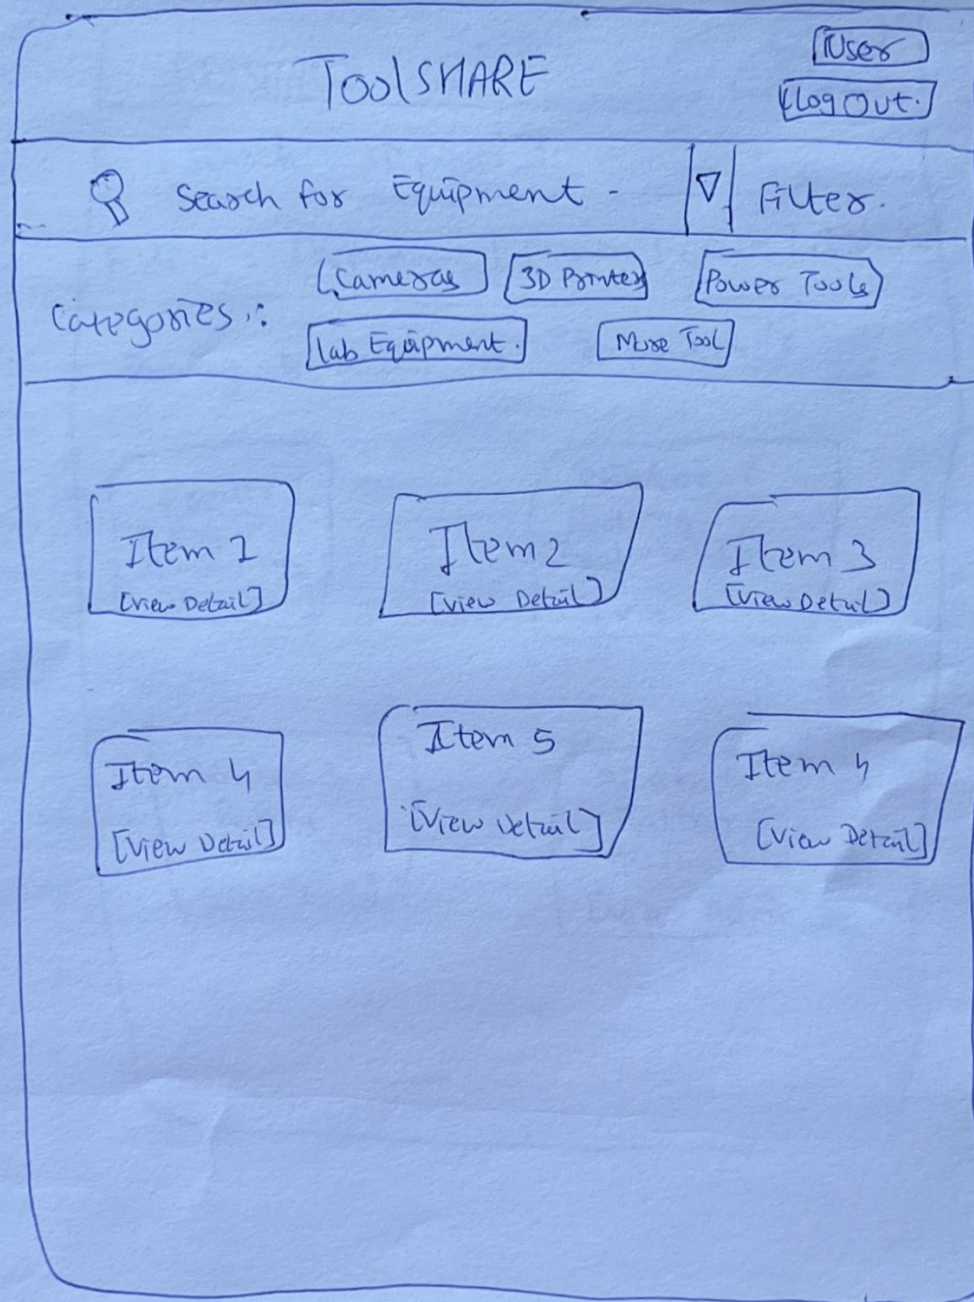 ToolSHARE
User
Log Out.
Search for Equipment -
Filter.
Categories :
Cameras
3D Printer
Power Tools
Lab Equipment.
More Tool
Item 1
[View Detail]
Item 2
[View Detail]
Item 3
[View Detail]
Item 4
[View Detail]
Item 5
[View Detail]
Item 4
[View Detail]